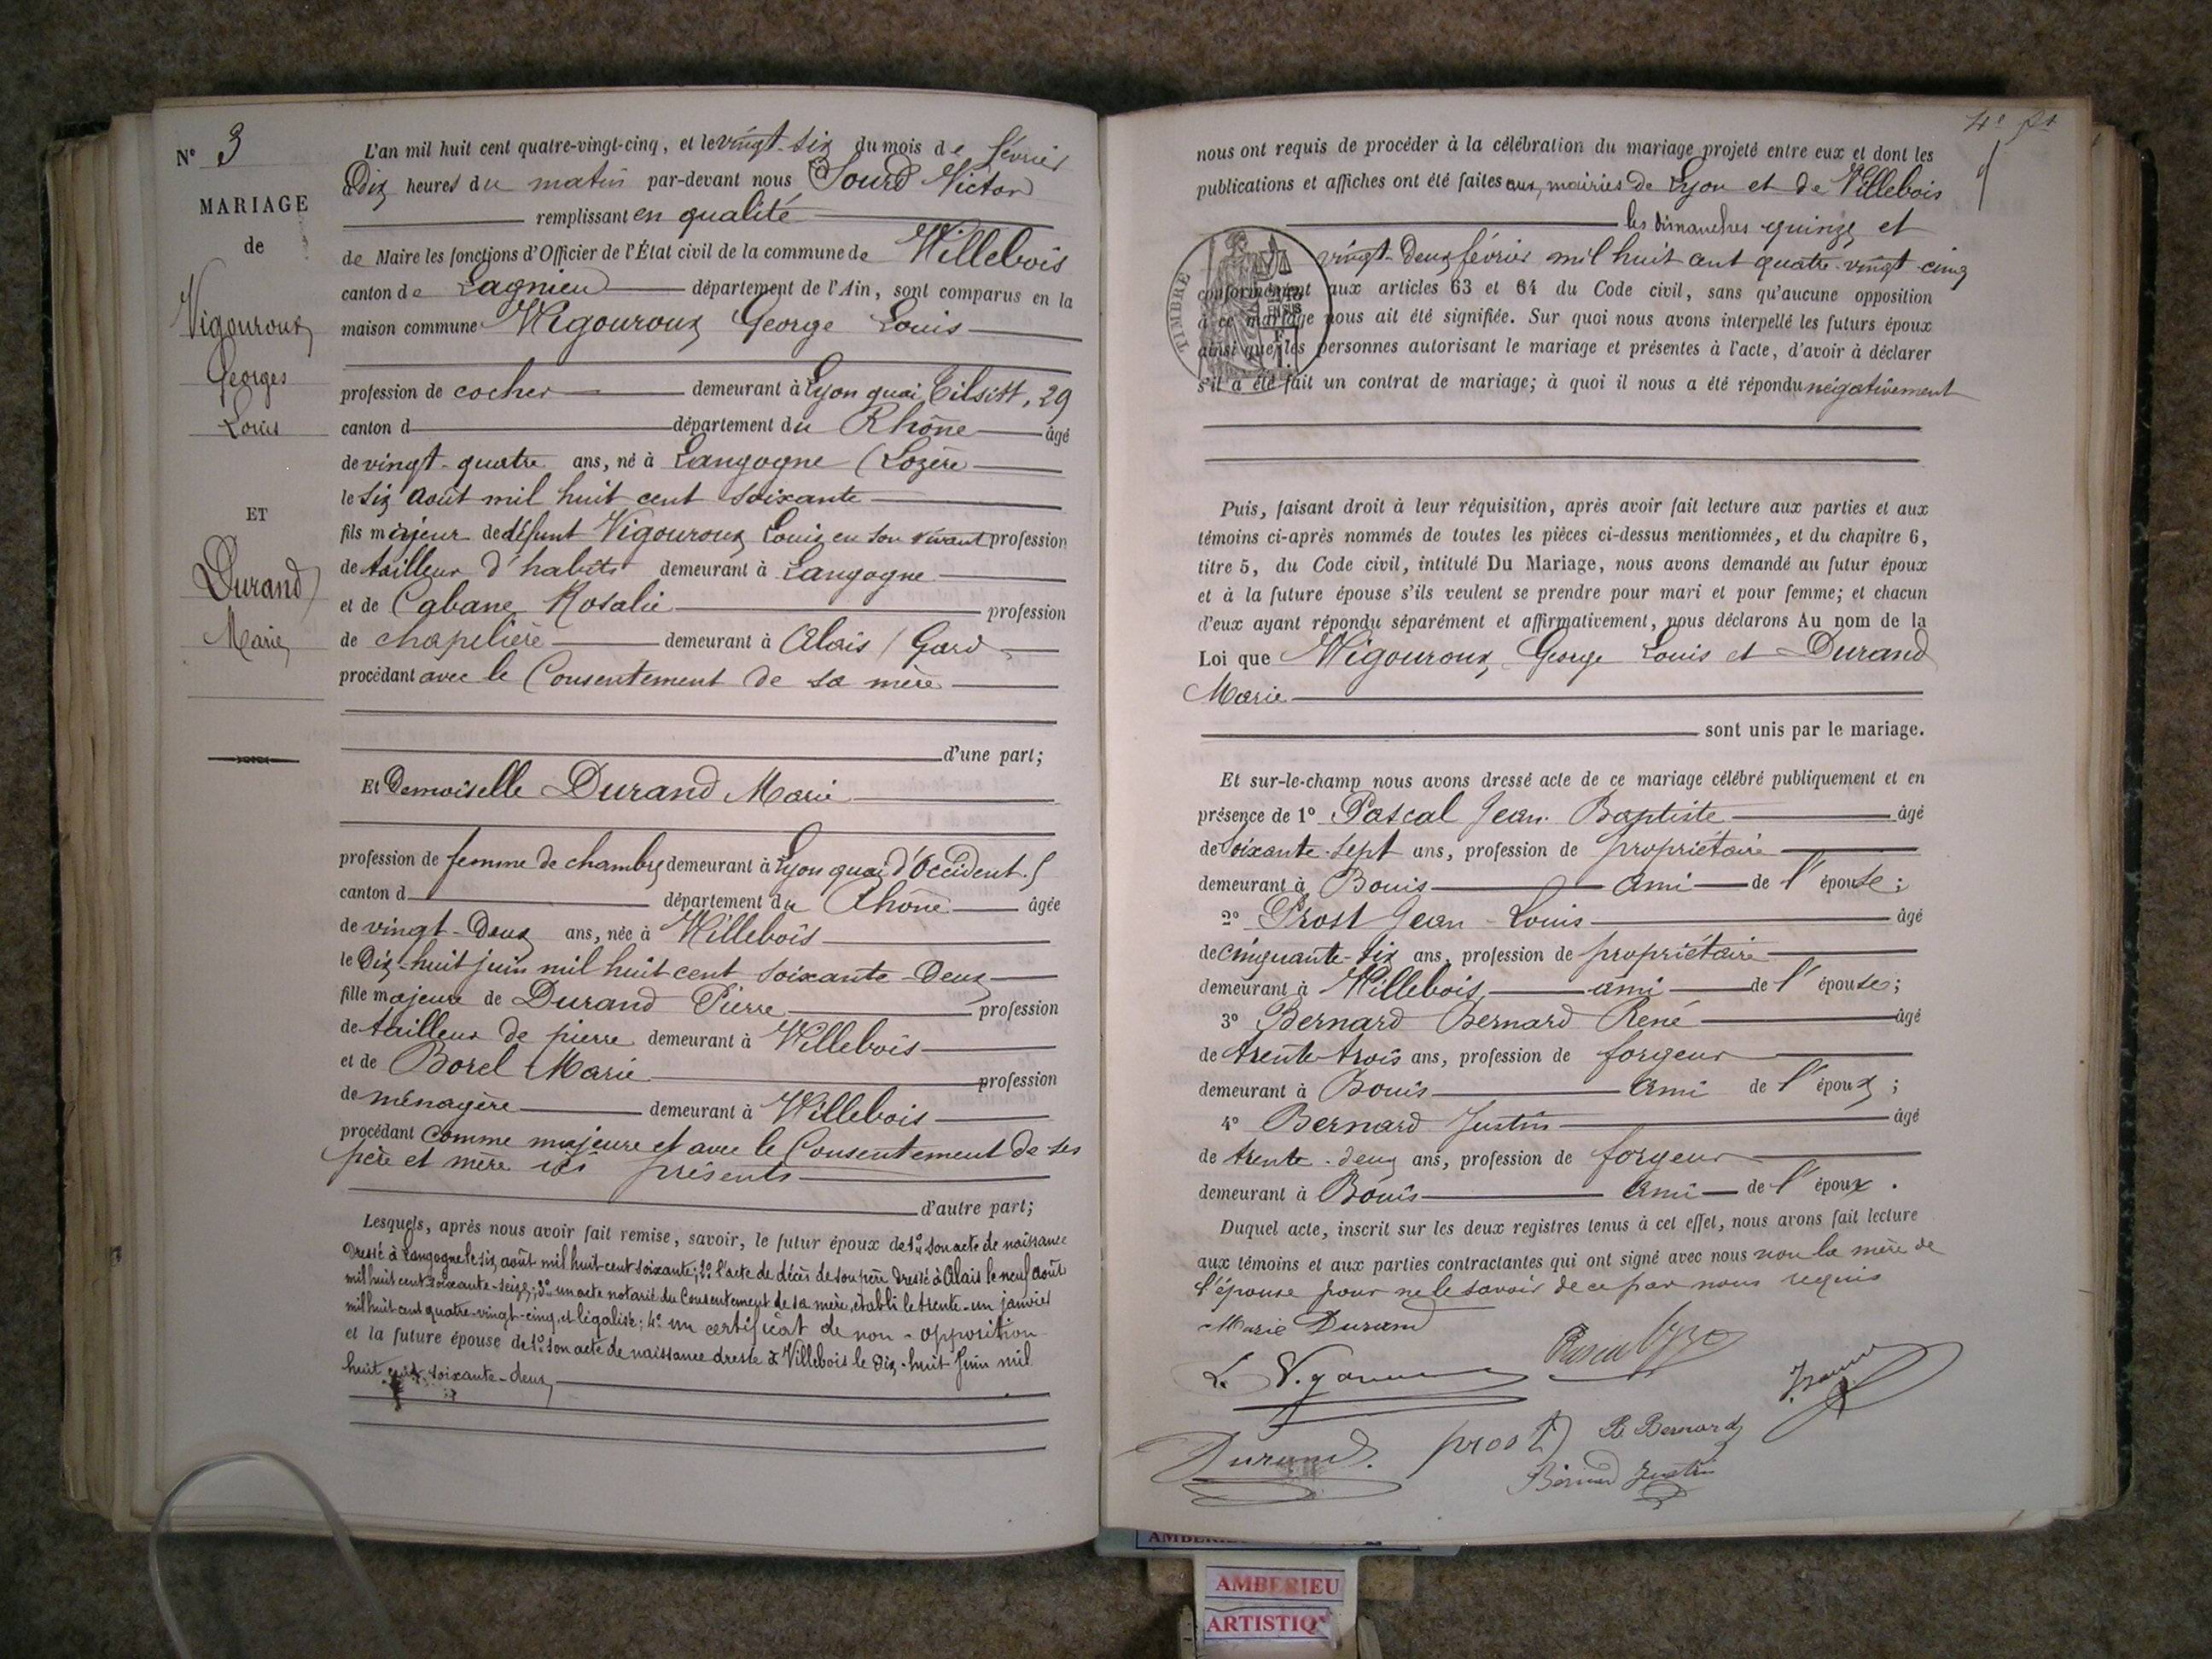 N° 3
MARIAGE
de
Vigouroux
Georges
Louis
ET
Durand
Marie
L'an mil huit cent quatre-vingt-cinq, et le vingt-six du mois de février
à Dix heures du matin par-devant nous Sourd Victor
remplissant en qualité
de Maire les fonctions d'Officier de l'État civil de la commune de Villebois
canton de Lagnieu département de l'Ain, sont comparus en la
maison commune Vigouroux George Louis
profession de cocher demeurant à Lyon quai Tilsitt, 29
canton d département du Rhône âgé
de vingt-quatre ans, né à Langogne (Lozère
le six août mil huit cent soixante
fils majeur de défunt Vigouroux Louis en son vivant profession
de tailleur d'habits demeurant à Langogne
et de Cabane Rosalie profession
de chapelière demeurant à Alais (Gard
procédant avec le Consentement de sa mère
d'une part;
Et Demoiselle Durand Marie
profession de femme de chambre demeurant à Lyon quai d'Occident. 5
canton d département du Rhône âgée
de vingt-Deux ans, née à Villebois
le Dix-huit juin mil huit cent soixante-Deux
fille majeure de Durand Pierre profession
de tailleur de pierre demeurant à Villebois
et de Borel Marie profession
de ménagère demeurant à Villebois
procédant comme majeure et avec le Consentement de ses
père et mère ici présents
d'autre part;
Lesquels, après nous avoir fait remise, savoir, le futur époux de 1° son acte de naissance
Dressé à Langogne le six août mil huit-cent soixante; 2° l'acte de décès de son père Dressé à Alais le neuf août
mil huit cent soixante-seize; 3° un acte notarié du Consentement de sa mère, établi le trente-un janvier
mil huit cent quatre-vingt-cinq, et légalisé; 4° un certificat de non-opposition
et la future épouse de 1° son acte de naissance dressé à Villebois le Dix-huit Juin mil
huit cent soixante-deux
4e
nous ont requis de procéder à la célébration du mariage projeté entre eux et dont les
publications et affiches ont été faites aux mairies de Lyon et de Villebois
les dimanches quinze et
vingt-Deux février mil huit cent quatre-vingt-cinq
TIMBRE
conformément aux articles 63 et 64 du Code civil, sans qu'aucune opposition
à ce mariage nous ait été signifiée. Sur quoi nous avons interpellé les futurs époux
ainsi que les personnes autorisant le mariage et présentes à l'acte, d'avoir à déclarer
s'il a été fait un contrat de mariage; à quoi il nous a été répondu négativement
Puis, faisant droit à leur réquisition, après avoir fait lecture aux parties et aux
témoins ci-après nommés de toutes les pièces ci-dessus mentionnées, et du chapitre 6,
titre 5, du Code civil, intitulé Du Mariage, nous avons demandé au futur époux
et à la future épouse s'ils veulent se prendre pour mari et pour femme; et chacun
d'eux ayant répondu séparément et affirmativement, nous déclarons Au nom de la
Loi que Vigouroux George Louis et Durand
Marie
sont unis par le mariage.
Et sur-le-champ nous avons dressé acte de ce mariage célébré publiquement et en
présence de 1° Pascal Jean-Baptiste âgé
de soixante-sept ans, profession de propriétaire
demeurant à Bouis ami de l'épouse;
2° Prost Jean-Louis âgé
de cinquante-six ans, profession de propriétaire
demeurant à Villebois ami de l'épouse;
3° Bernard Bernard René âgé
de trente-trois ans, profession de forgeur
demeurant à Bouis ami de l'époux;
4° Bernard Justin âgé
de trente-deux ans, profession de forgeur
demeurant à Bouis ami de l'époux.
Duquel acte, inscrit sur les deux registres tenus à cet effet, nous avons fait lecture
aux témoins et aux parties contractantes qui ont signé avec nous non la mère de
l'épouse pour ne le savoir de ce par nous requis
Marie Durand
Durand.
prost
B Bernard
Bernard Justin
AMBERIEU
ARTISTIQ